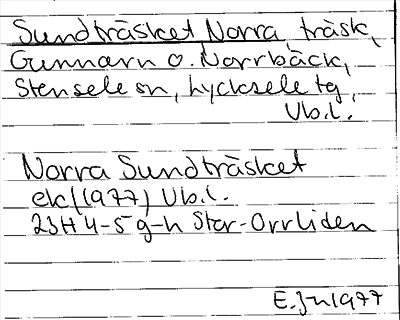 Sundträsket Norra, träsk,
Gunnarn o. Norrbäck,
Stensele sn, Lycksele tg,
Vb.l.
Norra Sundträsket
ek (1977) Vb.l.
23H 4-5 g-h Stor-Orrliden
E.Jn 1977